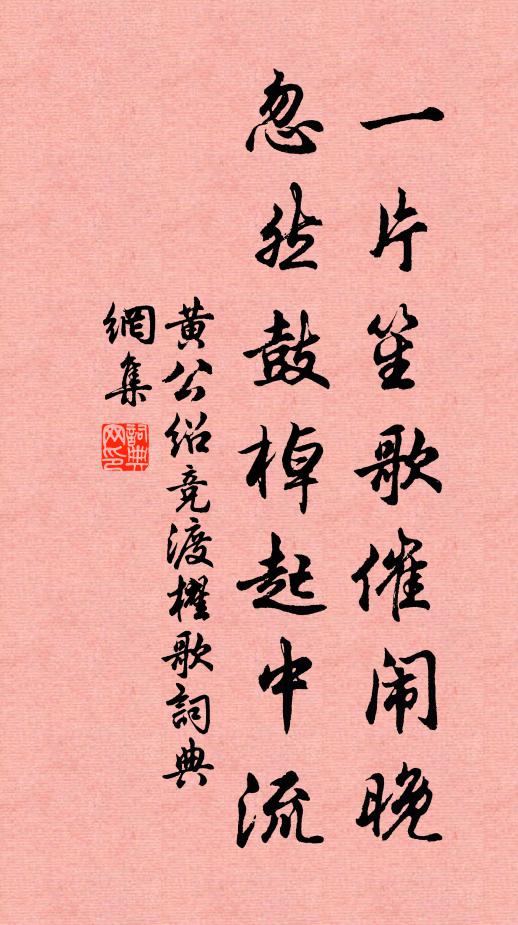 一片笙歌催闹晚
忽然鼓棹起中流
黄公绍竞渡櫂歌詞典
網集
詞典網印